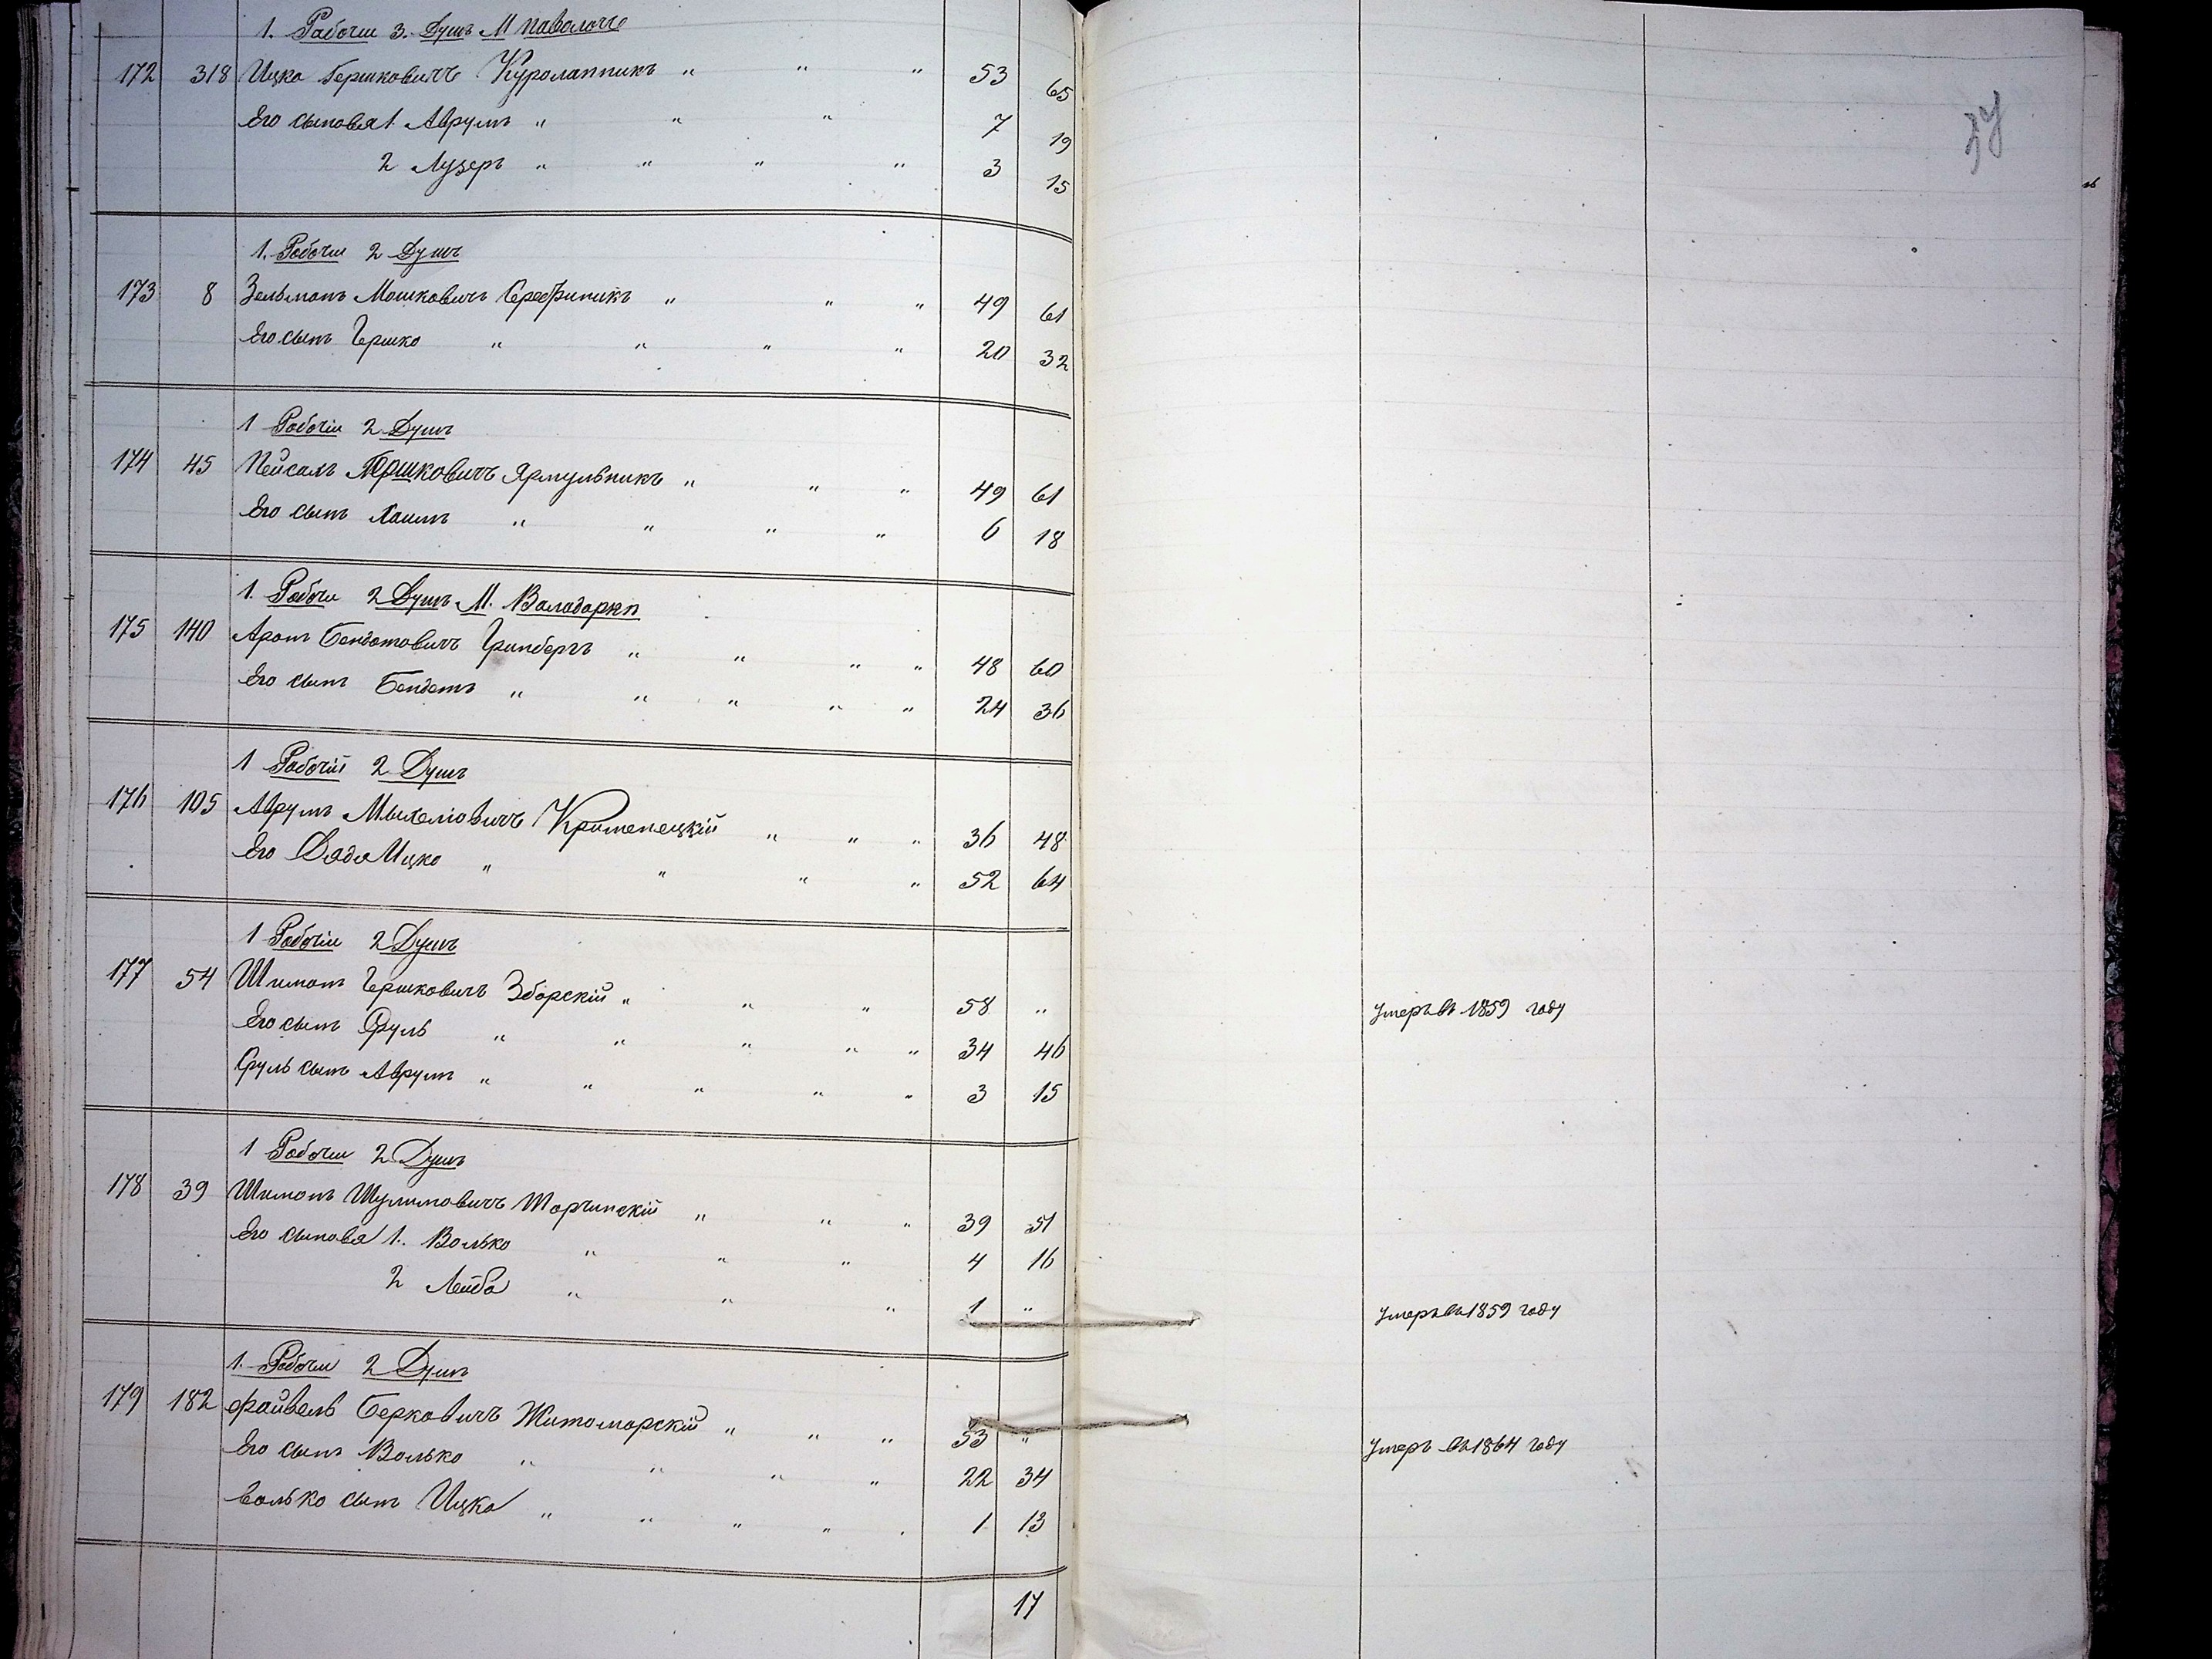 34
1. Рабочiи 3. Душъ М Паволочи
172 318 Ицко Гершковичъ Куролапникъ " " " 53 65
Его сыновья 1. Аврумъ " " " 7 19
2 Лузеръ " " " " 3 15
1. Рабочiи 2 Душъ
173 8 Зельманъ Мошковичъ Серебриникъ " " " 49 61
Его сынъ Гершко " " " " 20 32
1 Рабочiи 2 Душъ
174 45 Пейсахъ Гершковичъ Ярмульникъ " " " 49 61
Его сынъ Хаимъ " " " " 6 18
1. Рабочiи 2 Душъ М. Валадарки
175 140 Аронъ Бендетовичъ Гринбергъ " " " " 48 60
Его сынъ Бендетъ " " " " " 24 36
1 Рабочiй 2 Душъ
176 105 Аврумъ Мыхелiовичъ Кременецкiй " " " 36 48
Его Дядя Ицко " " " " 52 64
1 Рабочiи 2 Душъ
177 54 Шимонъ Гершковичъ Зборскiй " " " 58 " Умеръ въ 1859 году
Его сынъ Сруль " " " " " 34 46
Сруль сынъ Аврумъ " " " " " 3 15
1 Рабочiи 2 Душъ
178 39 Шимонъ Шулимовичъ Торчинскiй " " " 39 51
Его сыновья 1. Волько " " " 4 16
2 Лейба " " " 1 " Умеръ въ 1859 году
1. Рабочiи 2 Душъ
179 182 Файвель Берковичъ Житоморскiй " " " 53 " Умеръ въ 1864 году
Его сынъ Волько " " " " 22 34
Волько сынъ Ицко " " " " . 1 13
17